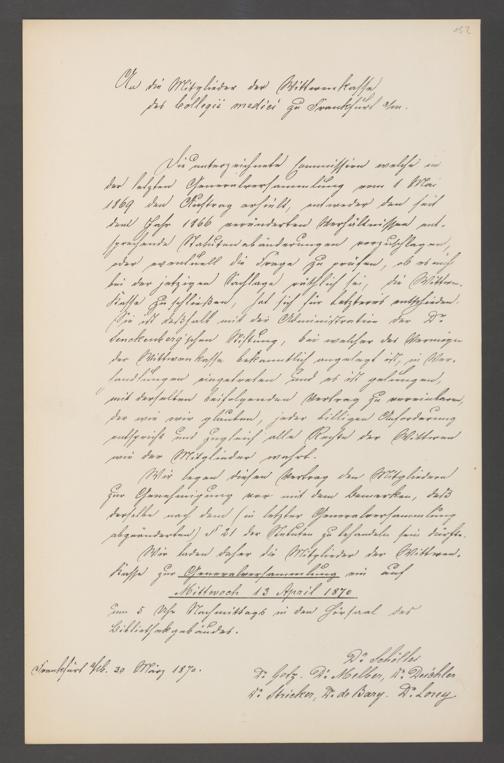 152
An die Mitglieder der Wittwenkasse
des Collegii medici zu Frankfurt a/m.
Die unterzeichnete Commission welche in
der letzten Generalversammlung vom 1 Mai
1869 den Auftrag erhielt, entweder den seit
dem Jahr 1866 veränderten Verhältnissen ent-
sprechende Statutenabänderungen vorzuschlagen,
oder eventuell die Frage zu prüfen, ob es nicht
bei der jetzigen Sachlage räthlich sei, die Wittwen-
Kasse zu schließen, hat sich für Letzteres entschieden.
Sie ist deßhalb mit der Administration der Dr.
Senckenberg'schen Stiftung, bei welcher das Vermögen
der Wittwenkasse bekanntlich angelegt ist, in Ver-
handlungen eingetreten und es ist gelungen,
mit derselben beifolgenden Vertrag zu vereinbaren,
der wie wir glauben, jeder billigen Anforderung
entspricht und zugleich alle Rechte der Wittwen
wie der Mitglieder wahrt.
Wir legen diesen Vertrag den Mitgliedern
zur Genehmigung vor mit dem Bemerken, daß
derselbe nach dem (in letzter Generalversammlung
abgeänderten) § 21 der Statuten zu behandeln sein dürfte.
Wir laden daher die Mitglieder der Wittwen-
Kasse zur Generalversammlung ein auf
Mittwoch 13 April 1870
um 5 Uhr Nachmittags in den Hörsaal des
Bibliothekgebäudes.
Frankfurt 30 März 1870.
Dr. Schölles
Dr. Getz. Dr. Melber, Dr.
Dr. Stricker, Dr. de Bary. Dr. Lorey